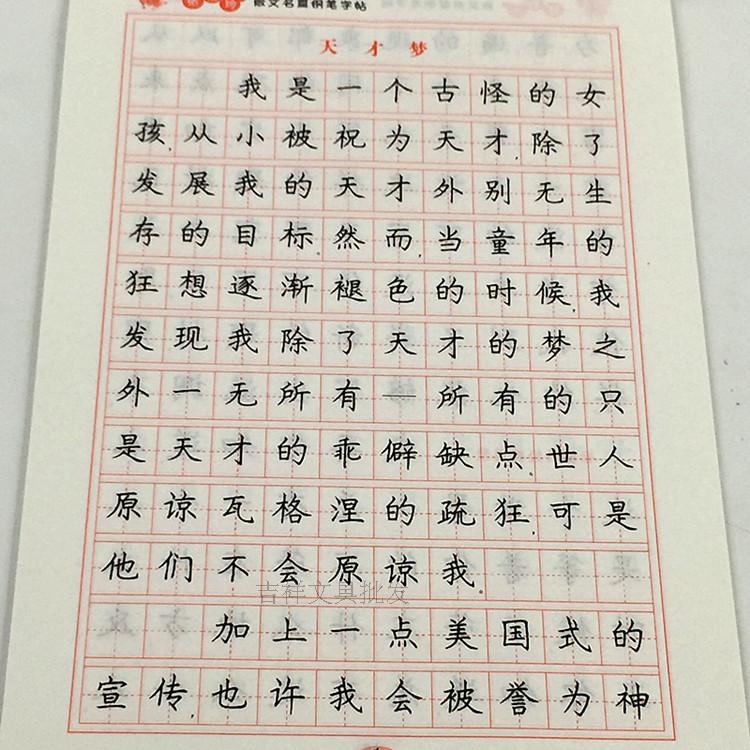 散文名篇钢笔字帖
天才梦
我是一个古怪的女
孩，从小被祝为天才，除了
发展我的天才外别无生
存的目标。然而，当童年的
狂想逐渐褪色的时候，我
发现我除了天才的梦之
外一无所有——所有的只
是天才的乖僻缺点。世人
原谅瓦格涅的疏狂，可是
他们不会原谅我。
加上一点美国式的
宣传，也许我会被誉为神
吉祥文具批发